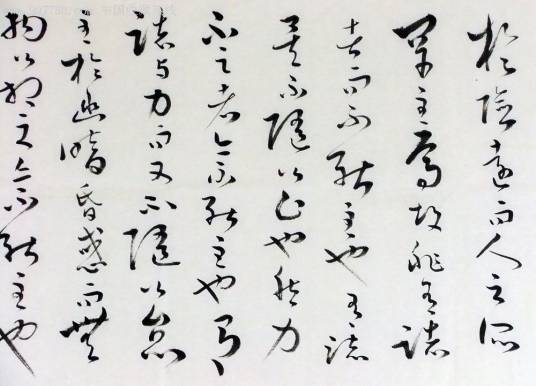 於險遠而人之所
罕至焉故非有誌
者而不能至也有誌
矣不隨以止也然力
不足者亦不能至也有
誌與力而又不隨以怠
至於幽暗昏惑而無
物以相之亦不能至也